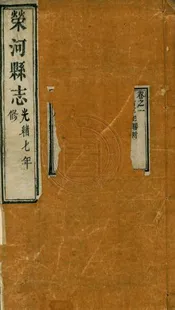 榮河縣志
光緒七年
修
卷之一